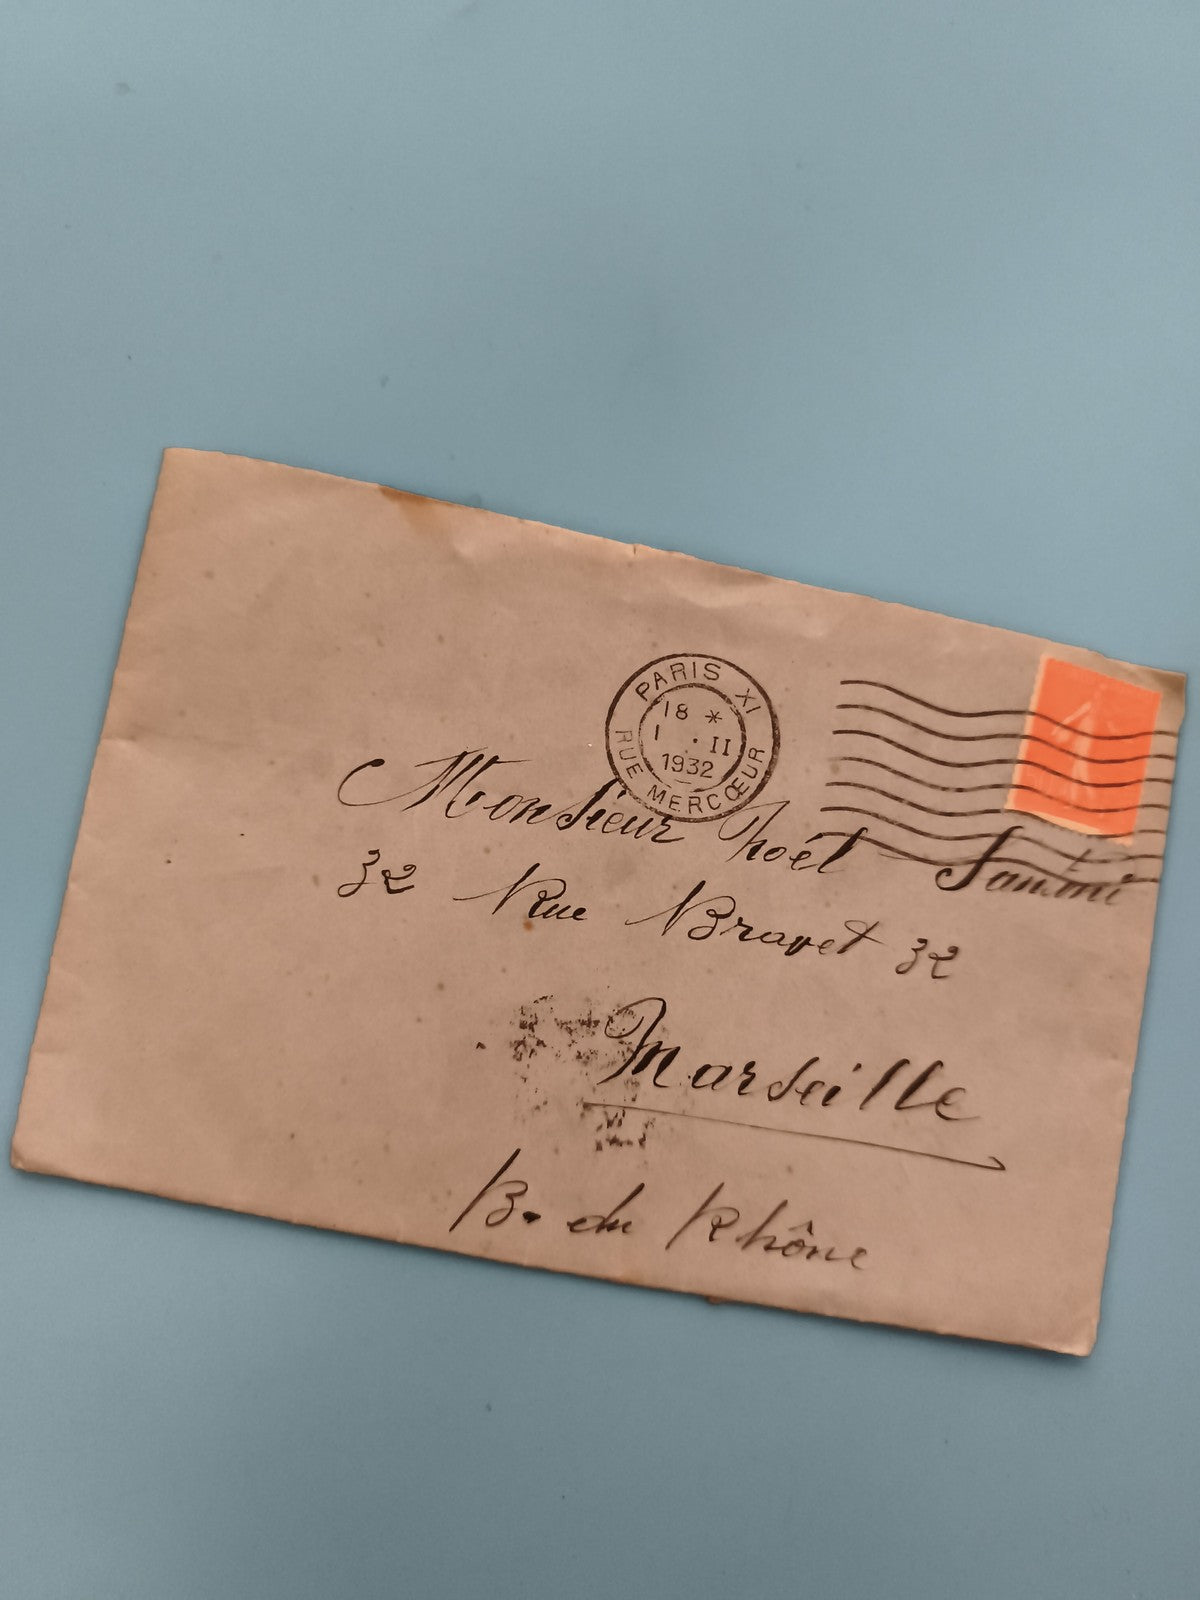 PARIS XI
18 *
1 . II
1932
RUE MERCŒUR
Monsieur Noël Santoni
32 Rue Bravet 32
Marseille
B. du Rhône